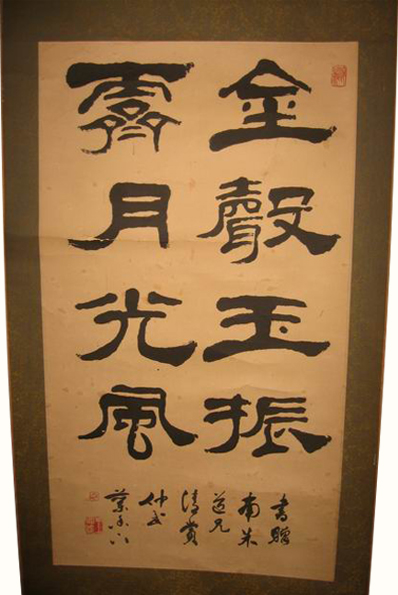 金聲玉振
霽月光風
書贈
南朱
道兄
清賞
仲武